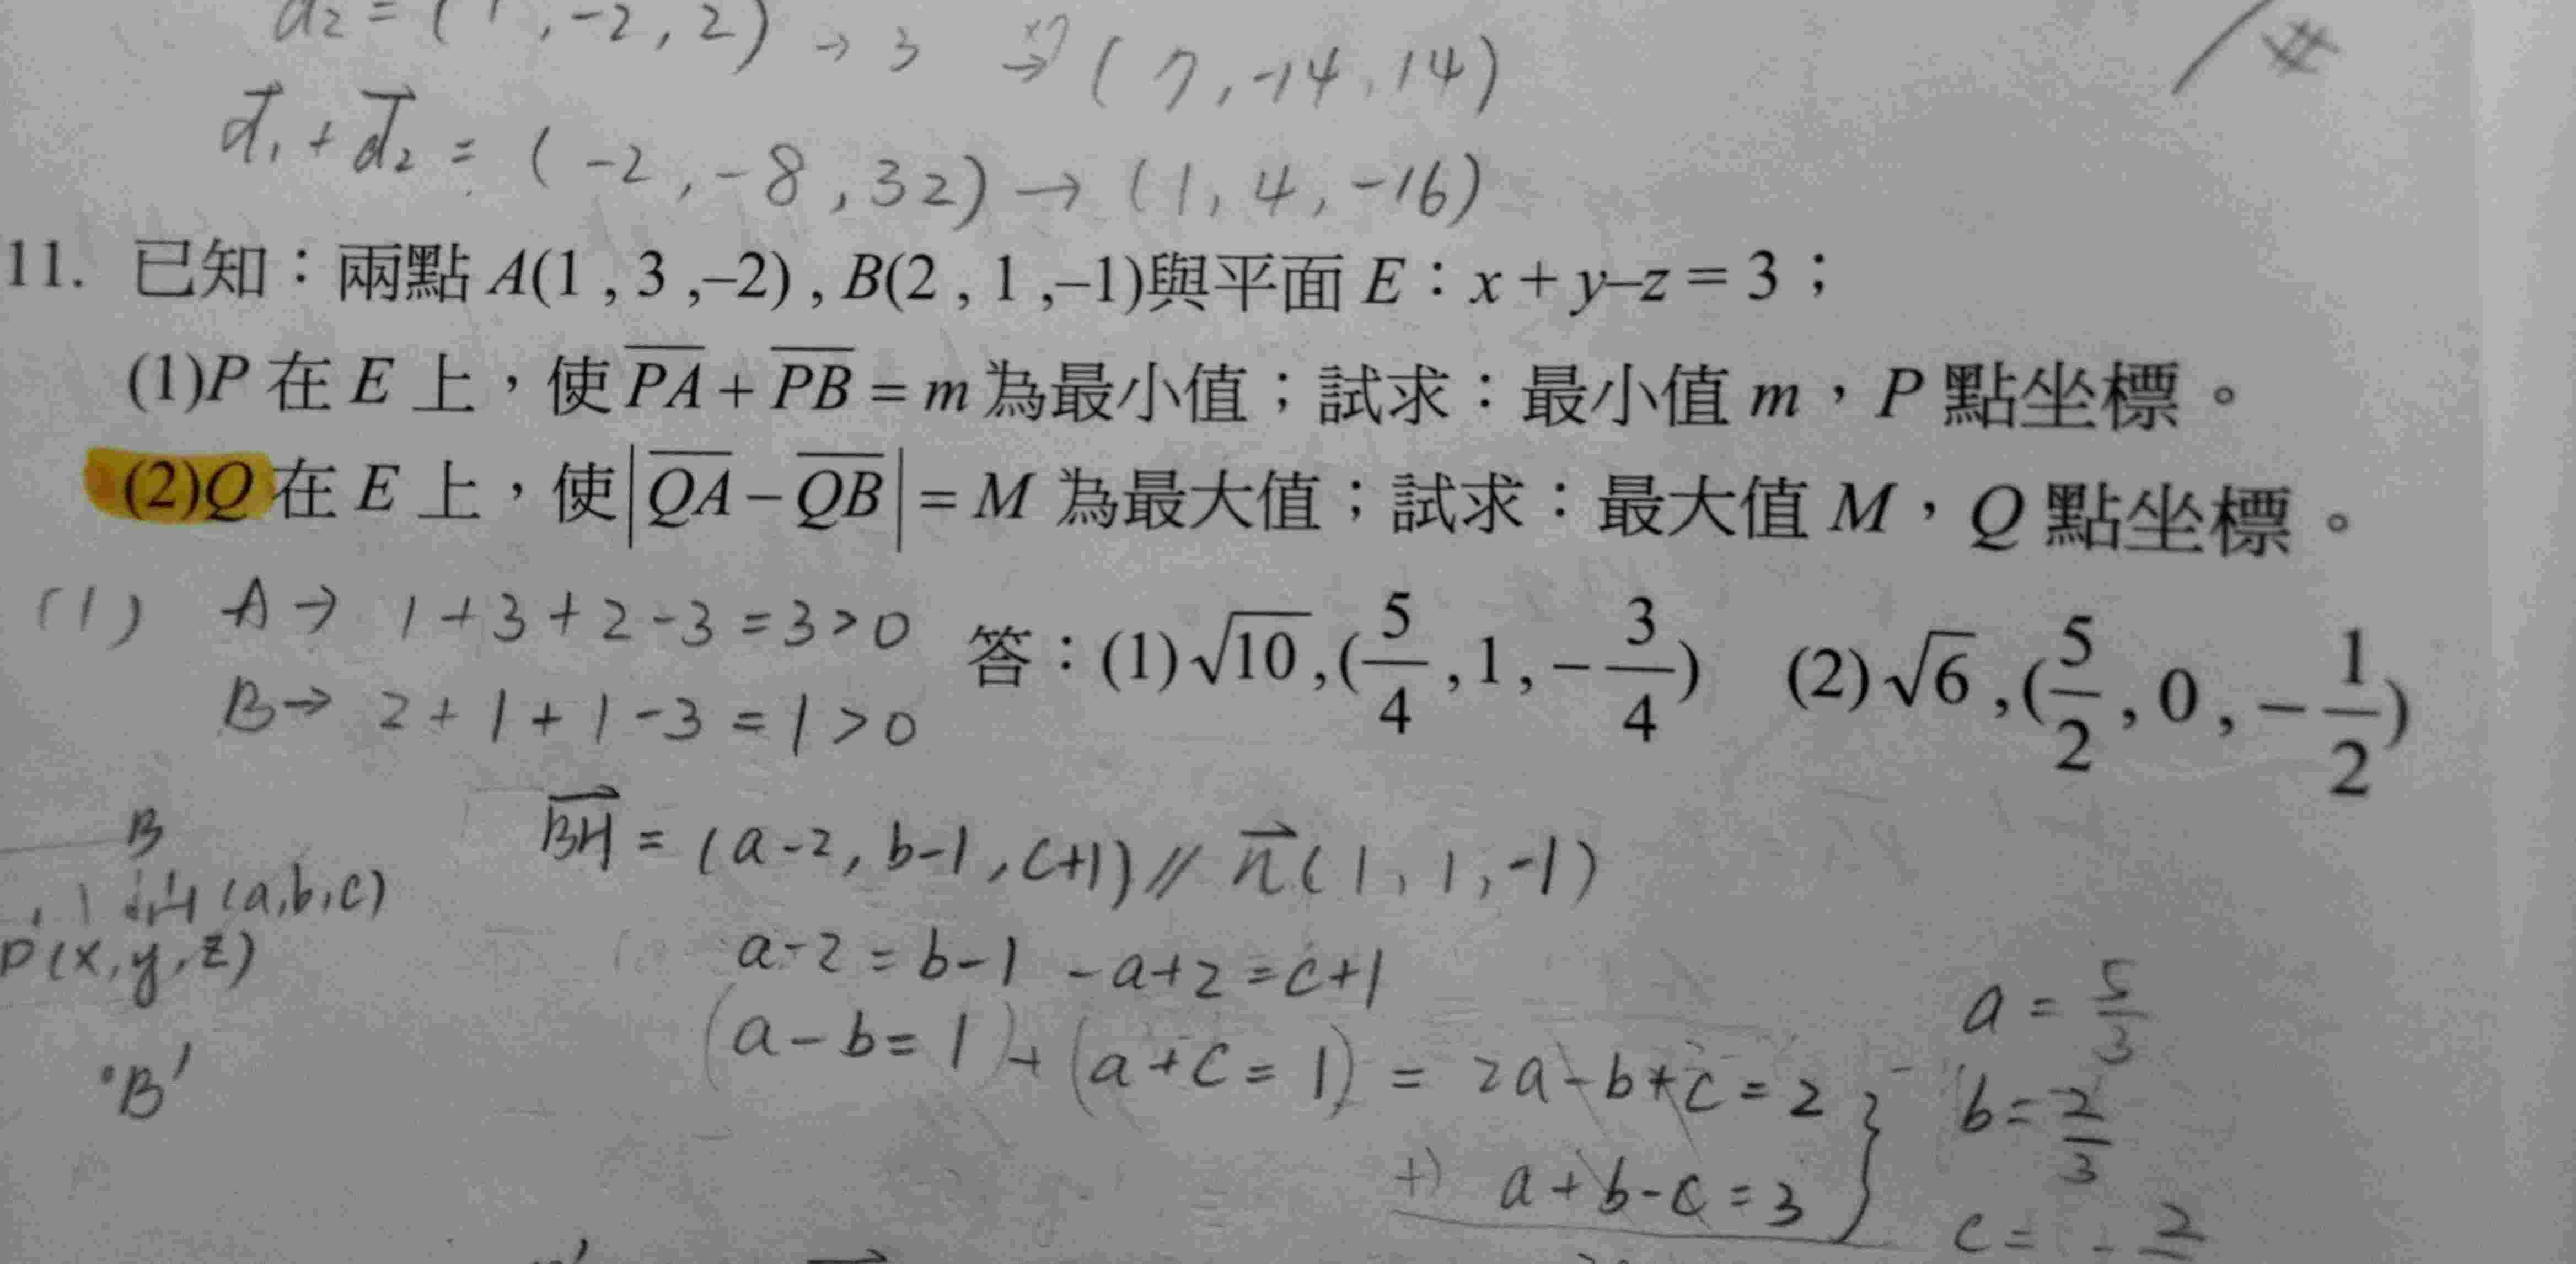 d₂ = (1, -2, 2) → 3 ×7→ (7, -14, 14)
d₁ + d₂ = (-2, -8, 32) → (1, 4, -16)
11. 已知：兩點 A(1 , 3 ,–2) , B(2 , 1 ,–1)與平面 E：x + y–z = 3；
(1)P 在 E 上，使 PA + PB = m 為最小值；試求：最小值 m，P 點坐標。
(2)Q 在 E 上，使|QA – QB| = M 為最大值；試求：最大值 M，Q 點坐標。
(1) A → 1+3+2-3 = 3 > 0
B → 2+1+1-3 = 1 > 0
答：(1)√10 ,(5/4 , 1 , –3/4) (2)√6 ,(5/2 , 0 , –1/2)
BH = (a-2, b-1, c+1) // n(1, 1, -1)
B
H(a,b,c)
P(x,y,z)
B'
a-2 = b-1 -a+2 = c+1
(a-b=1) + (a+c=1) = 2a-b+c=2
+) a+b-c=3
a = 5/3
b = 2/3